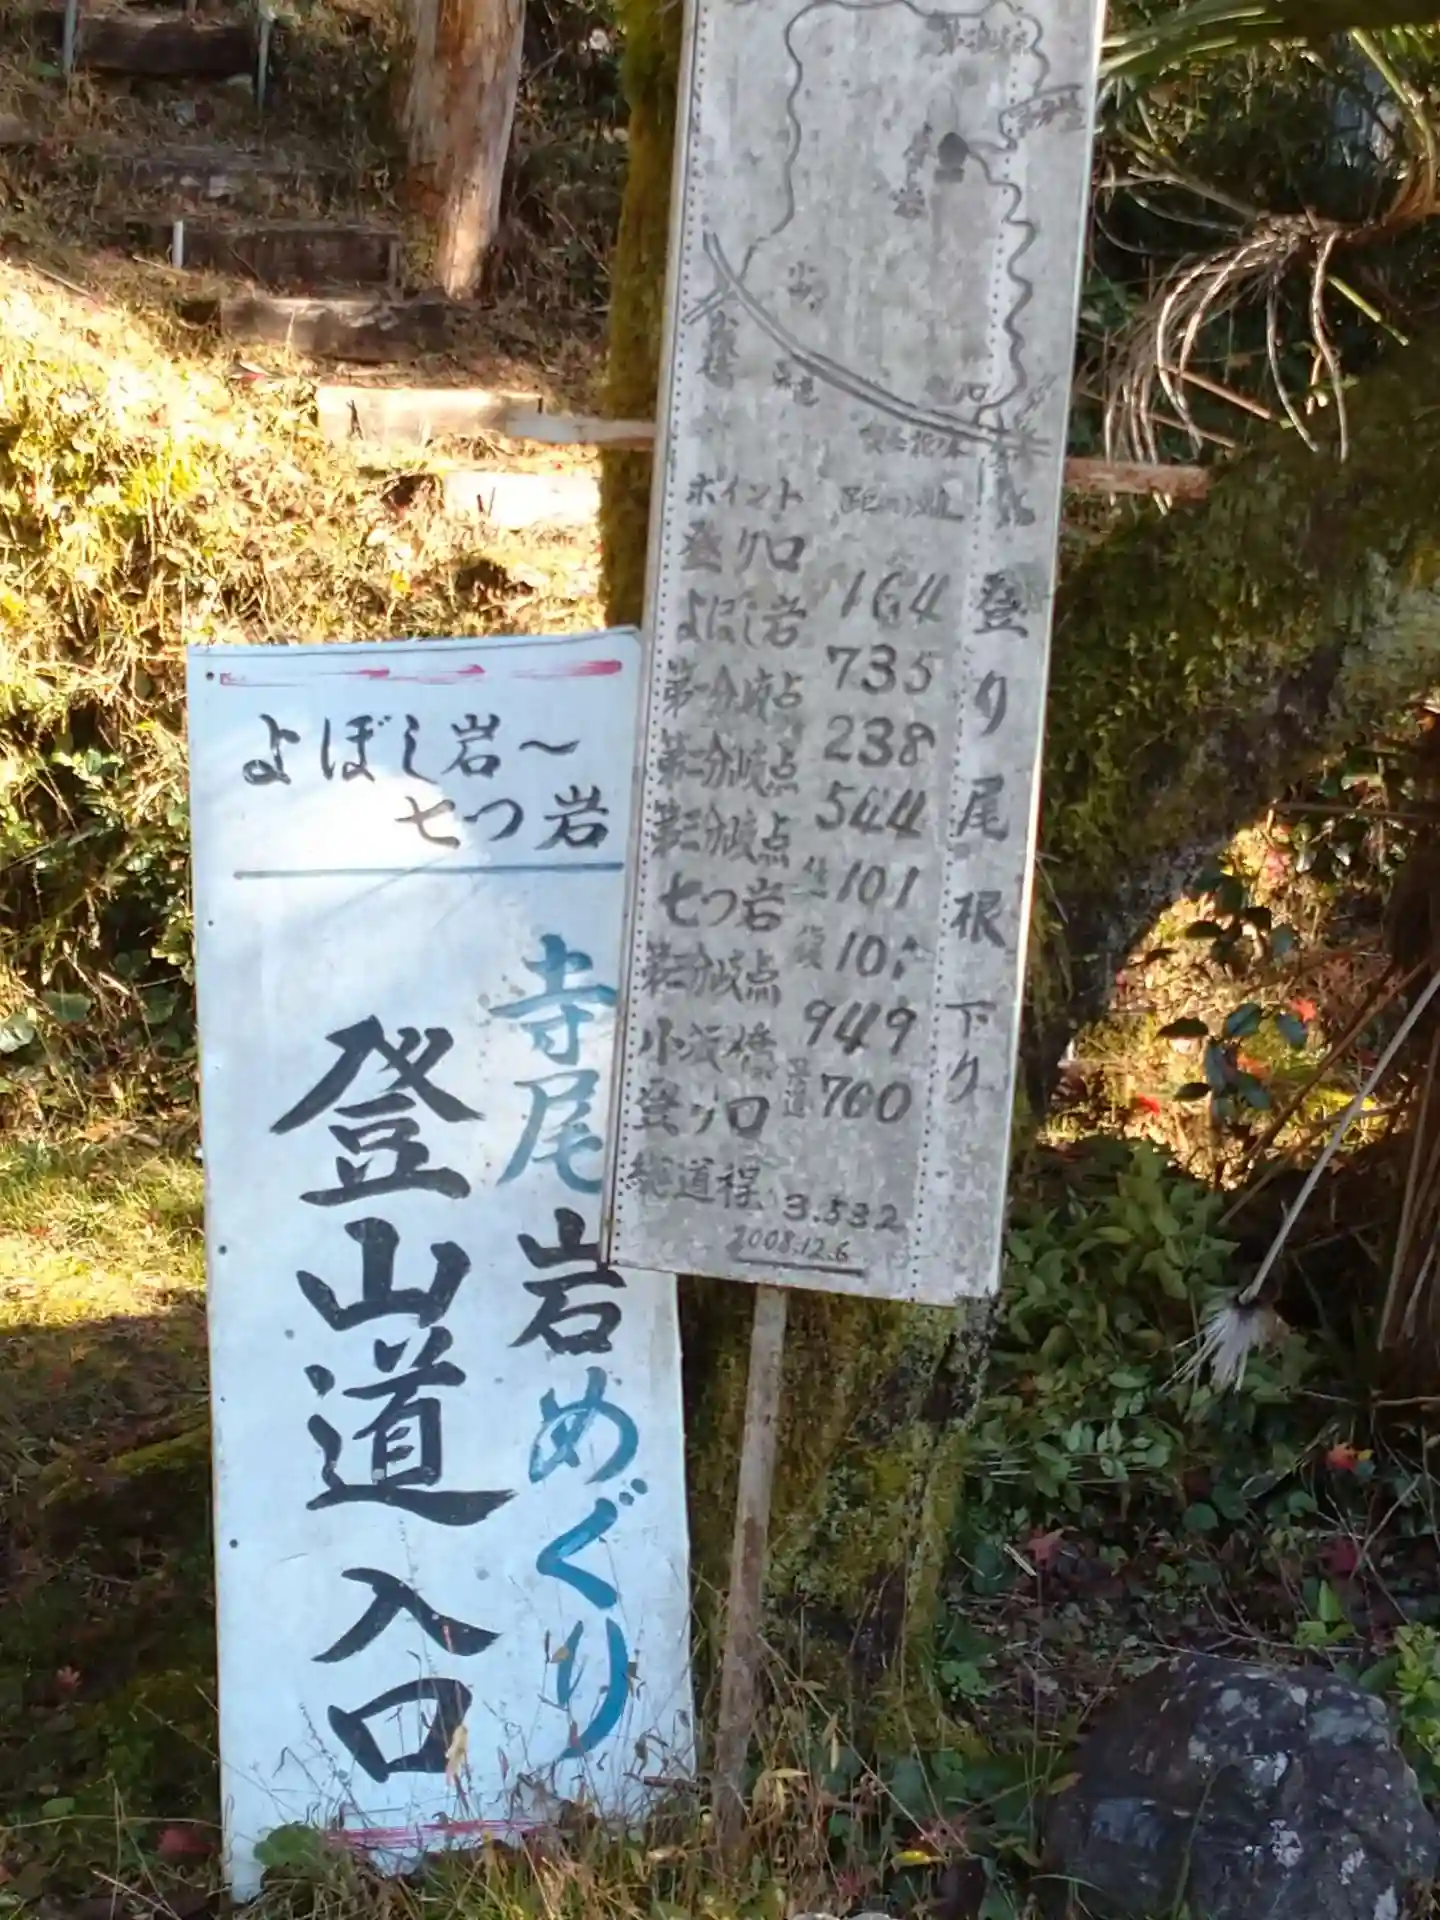 よぼし岩〜
七つ岩
寺尾岩めぐり
登山道入口
ポイント 距離
登り口
164
よぼし岩
735
第一分岐点
238
第二分岐点
544
第三分岐点
往 101
七つ岩
復 10
第三分岐点
949
小浜橋
県道 700
登り口
総道程 3.532
2008.12.6
登り尾根下り